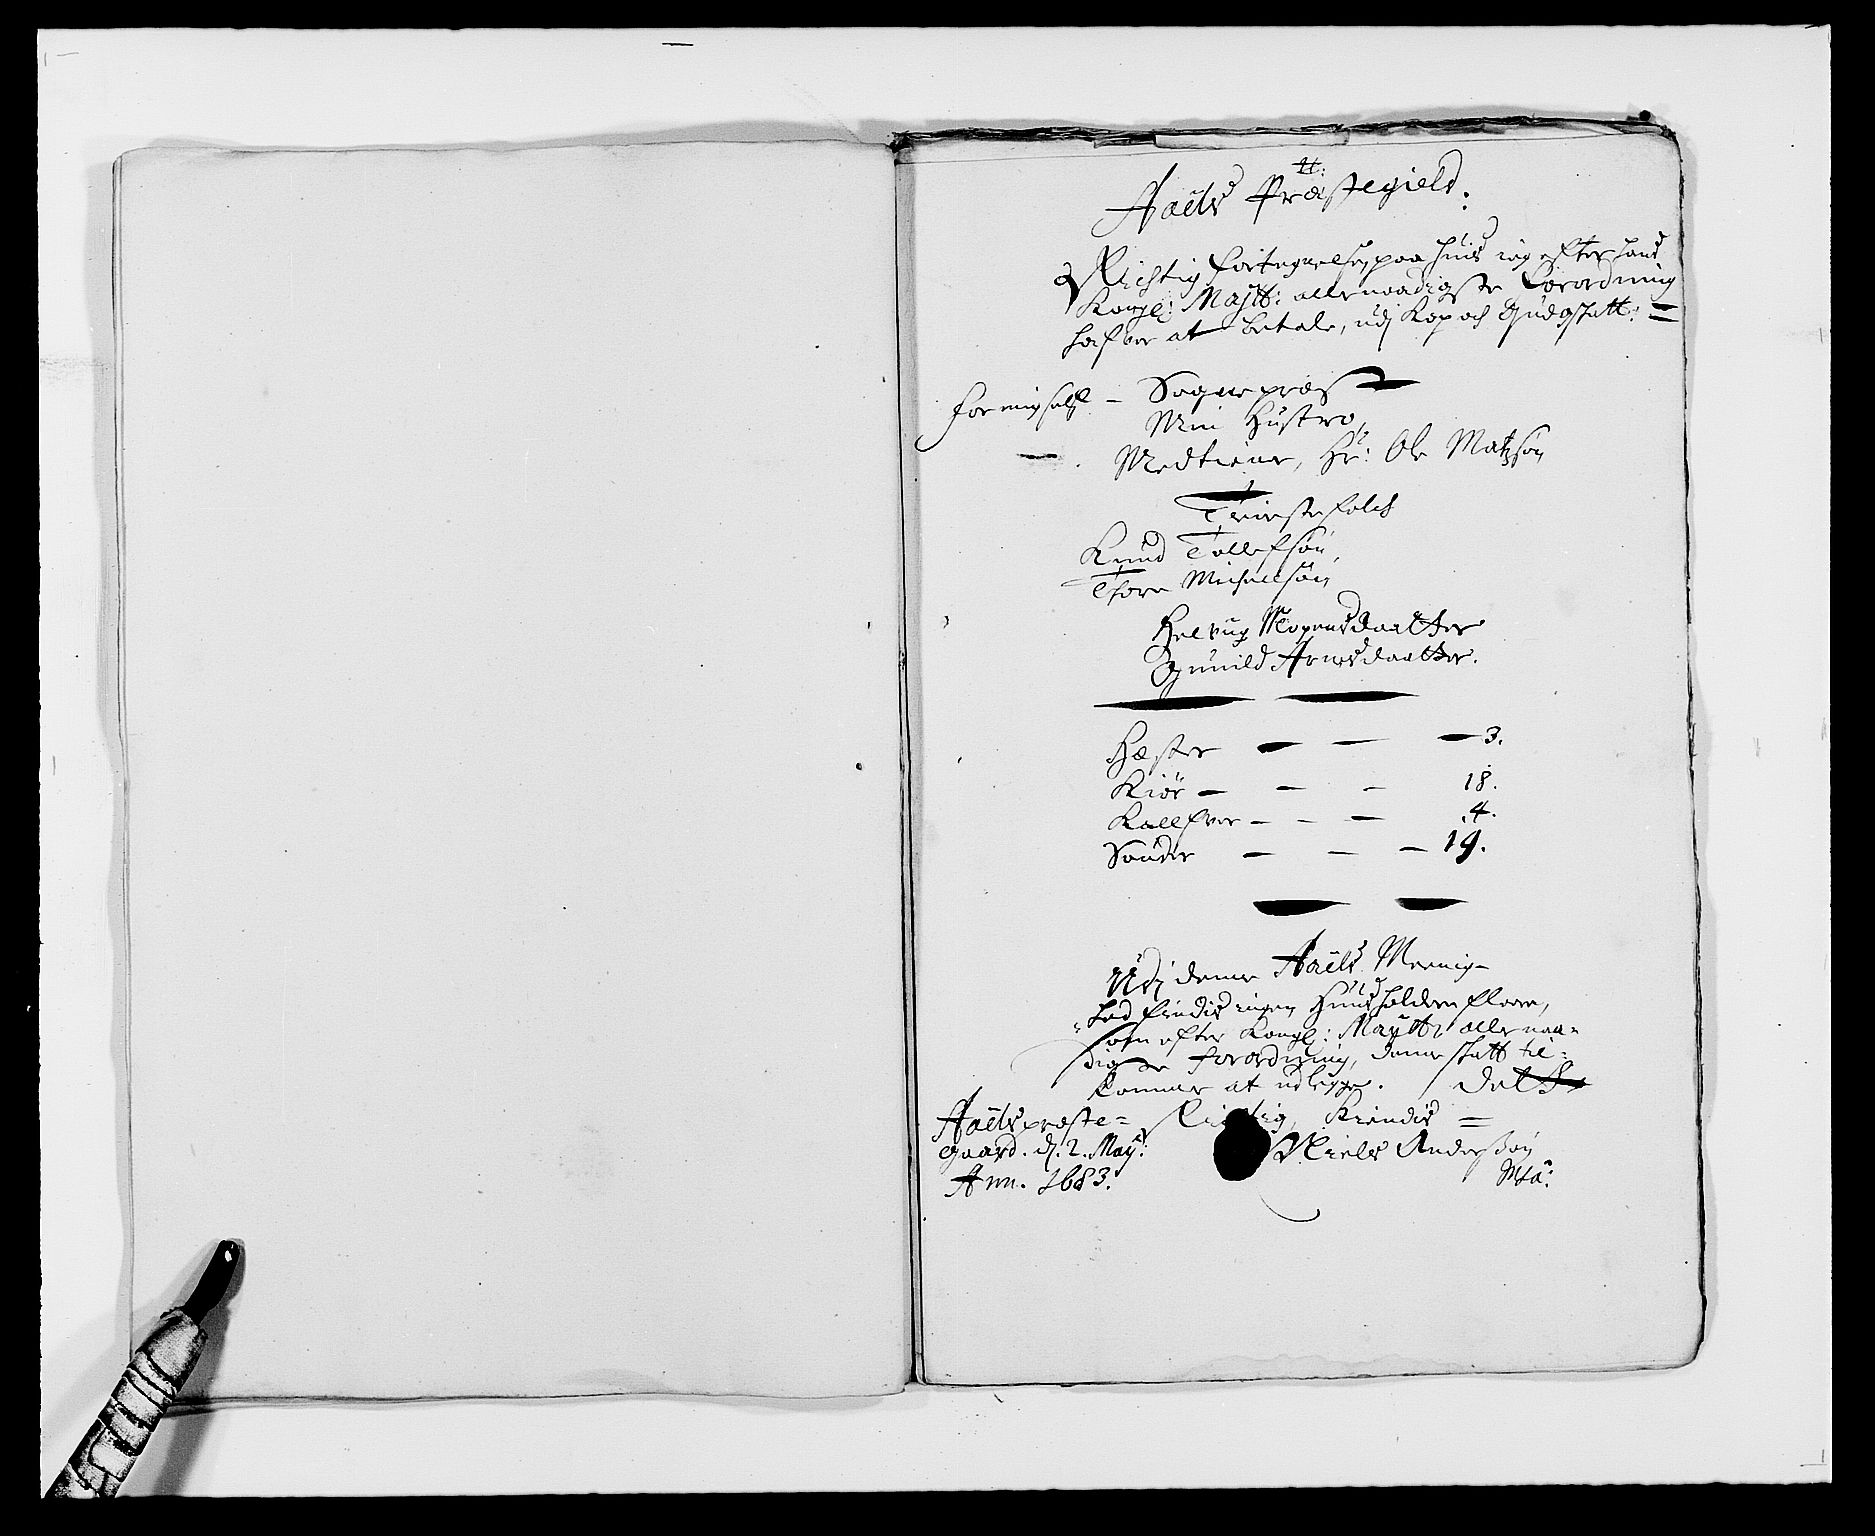 Aaels Præstegield:
Richtig fortegnelse, paa huis ieg efter hans
Kongl: Maÿtt: allernaadigste forordning
hafver at betale, udj Kop och Quegskatt: =
for mig self - Sognepræst
Min Hustro,
Medtiener, Hr: Ole Matzsøn
Tienistefolch
Knud Tollefsøn,
Thore Michaelsøn
Helvig Mogensdaatter
Gunild Arnesdaatter.
Hæster - - - 3.
Kiør - - - 18.
Kallfver - - - 4.
Souder - - - 19.
Udj denne Aaels Meenig-
hed findis ingen Huusholdere fleere,
som efter Kongl: Maÿtts allernaa-
digste forordning, denne skatt til-
kommer at udlegge. Dette
Aaels præste= Rigtig, kiendis =
gaard. d. 2. Maÿ: Niels Anderssøn
Ann. 1683. Mia: